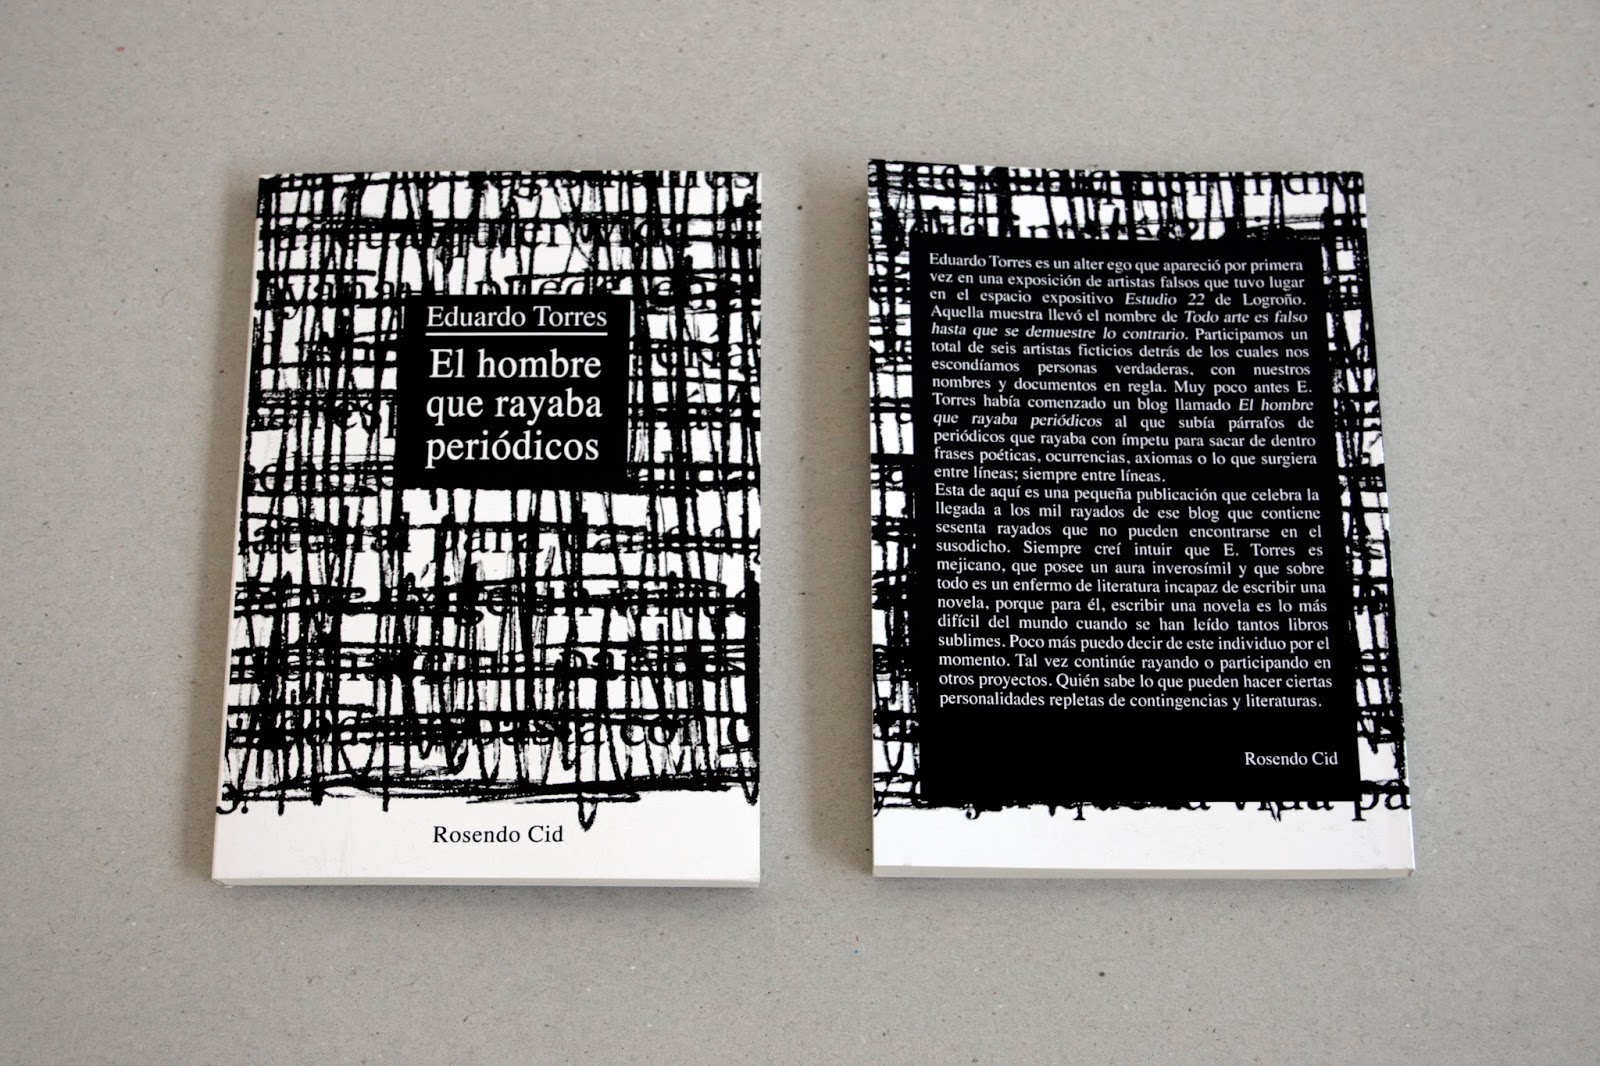 Eduardo Torres
El hombre
que rayaba
periódicos
Rosendo Cid
Eduardo Torres es un alter ego que apareció por primera
vez en una exposición de artistas falsos que tuvo lugar
en el espacio expositivo Estudio 22 de Logroño.
Aquella muestra llevó el nombre de Todo arte es falso
hasta que se demuestre lo contrario. Participamos un
total de seis artistas ficticios detrás de los cuales nos
escondíamos personas verdaderas, con nuestros
nombres y documentos en regla. Muy poco antes E.
Torres había comenzado un blog llamado El hombre
que rayaba periódicos al que subía párrafos de
periódicos que rayaba con ímpetu para sacar de dentro
frases poéticas, ocurrencias, axiomas o lo que surgiera
entre líneas; siempre entre líneas.
Esta de aquí es una pequeña publicación que celebra la
llegada a los mil rayados de ese blog que contiene
sesenta rayados que no pueden encontrarse en el
susodicho. Siempre creí intuir que E. Torres es
mejicano, que posee un aura inverosímil y que sobre
todo es un enfermo de literatura incapaz de escribir una
novela, porque para él, escribir una novela es lo más
difícil del mundo cuando se han leído tantos libros
sublimes. Poco más puedo decir de este individuo por el
momento. Tal vez continúe rayando o participando en
otros proyectos. Quién sabe lo que pueden hacer ciertas
personalidades repletas de contingencias y literaturas.
Rosendo Cid